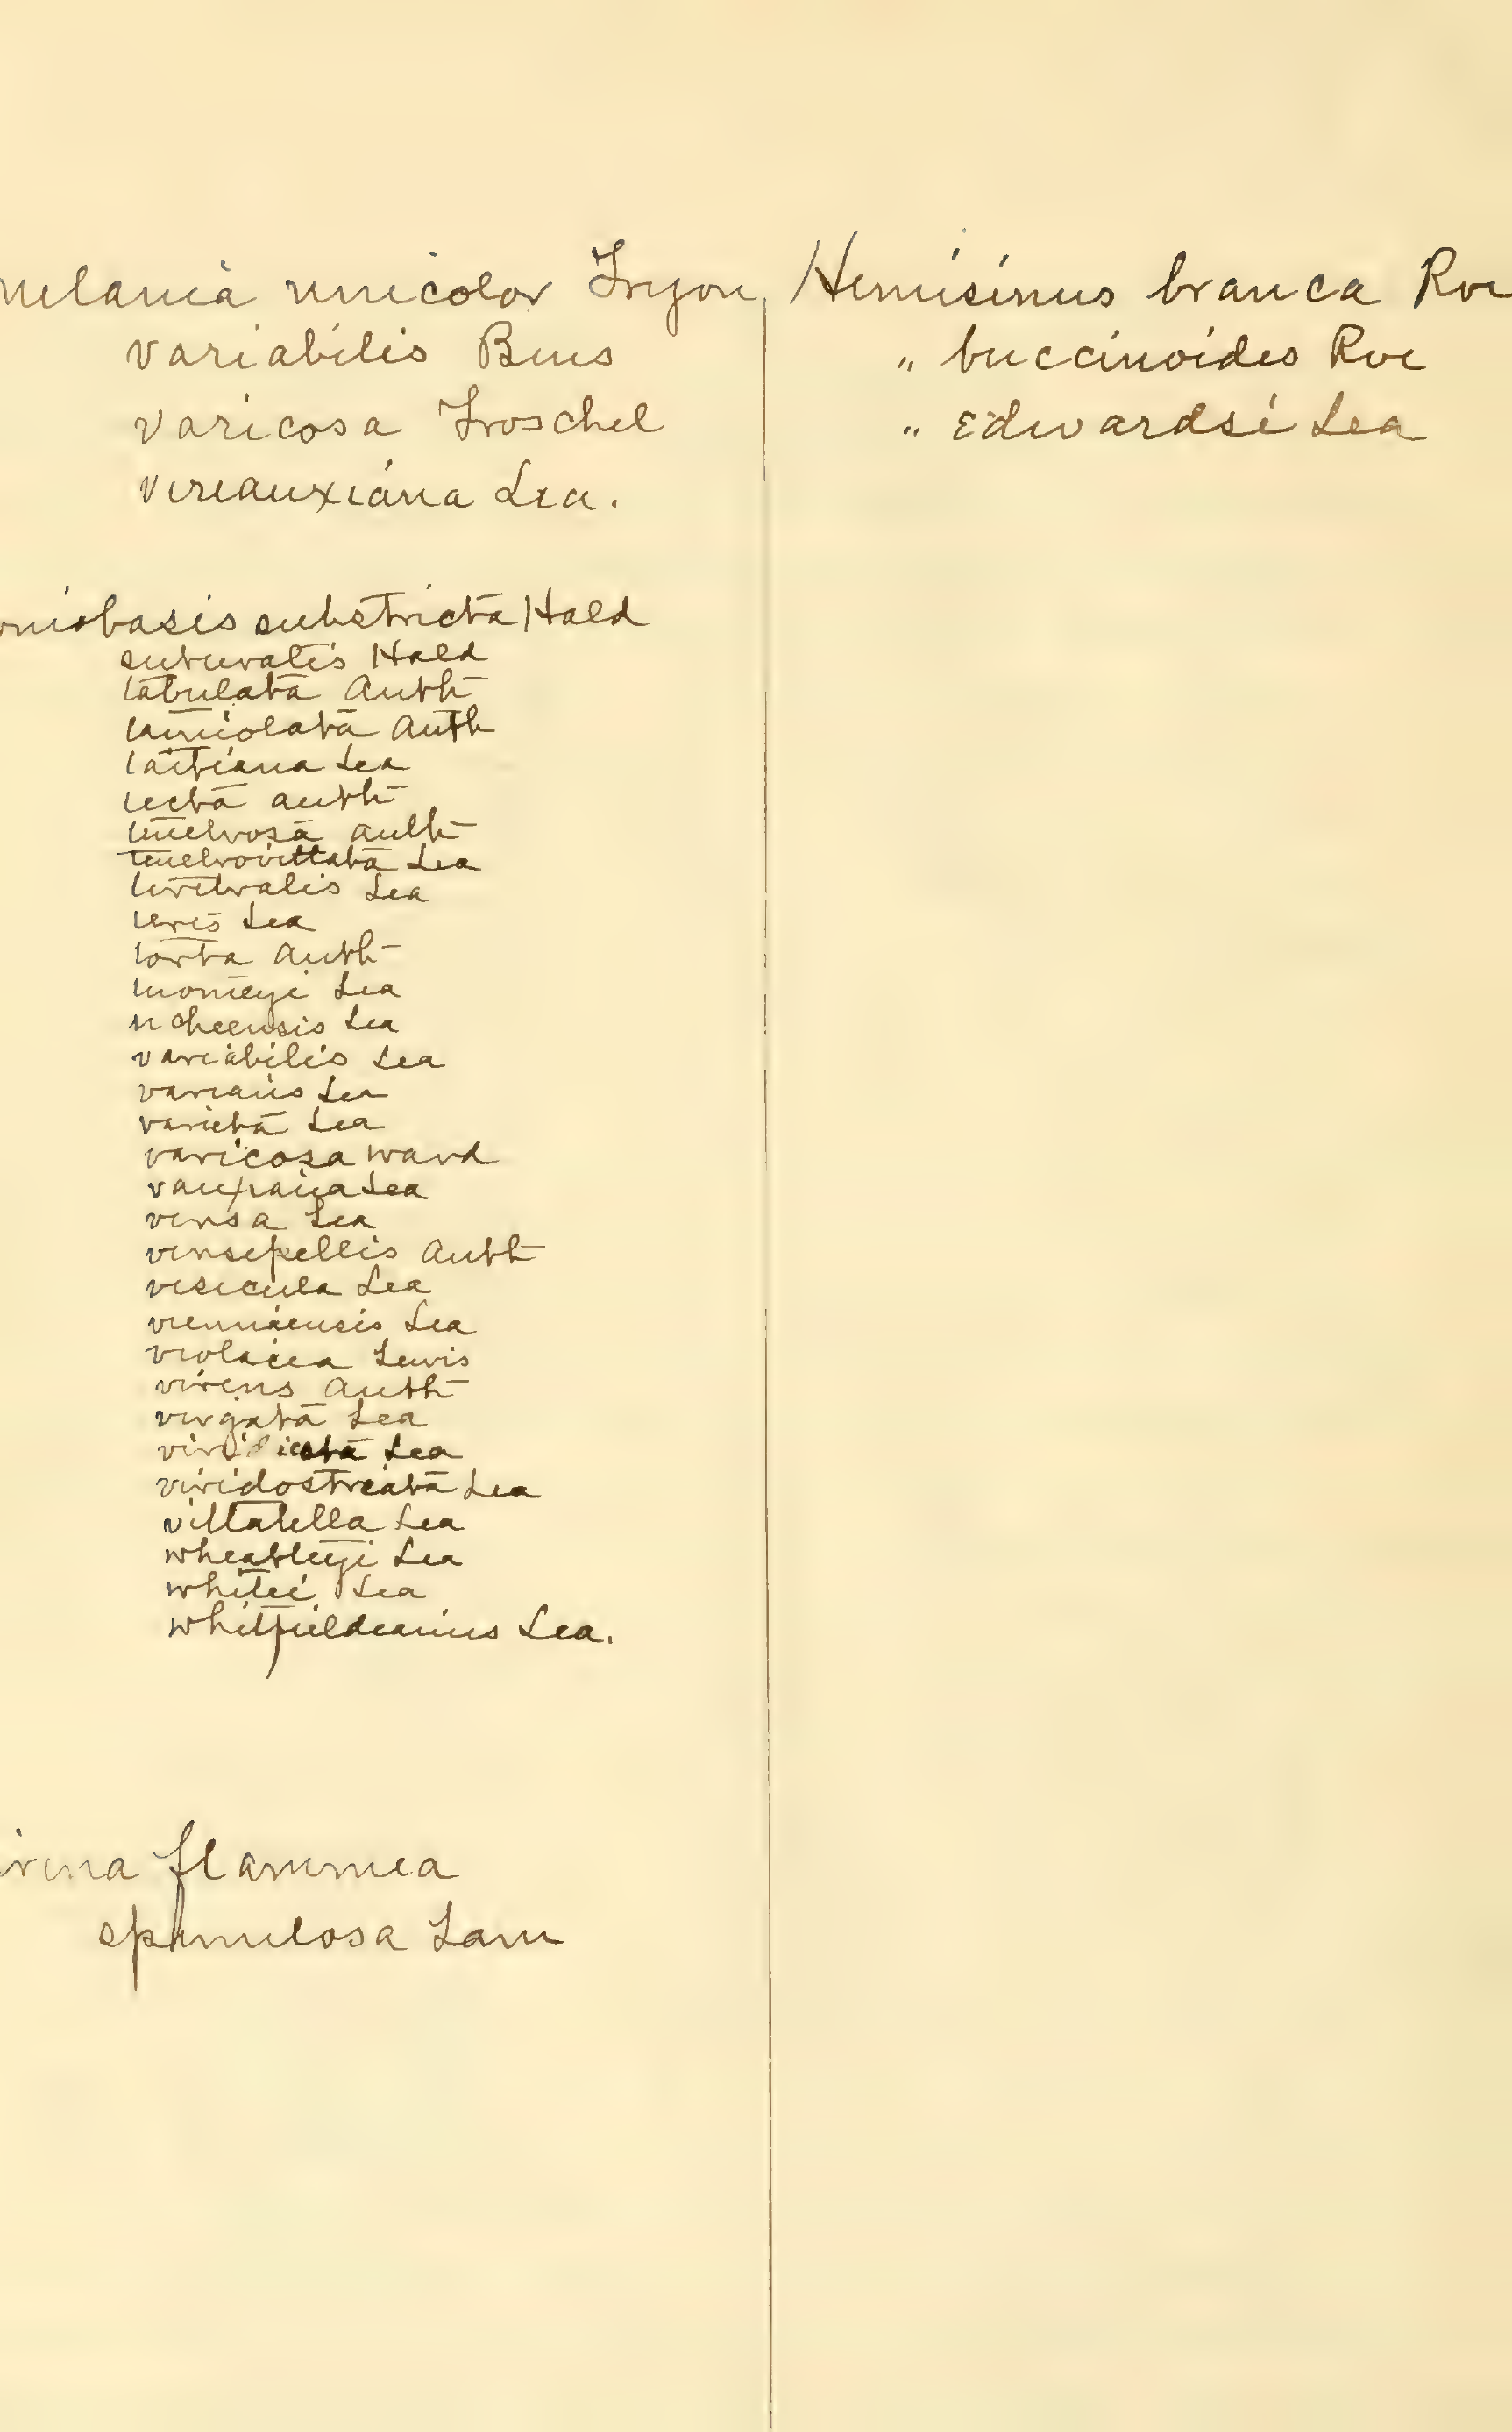 melania unicolor Tryon
variabilis Bens
varicosa Troschel
vereauxiana Lea.
oniobasis substricta Hald
suturatis Hald
tabulata Anth
taeniolata Anth
taitiana Lea
tecta Anth
tenebrosa Anth
tenebrovittata Lea
teretralis Lea
teres Lea
torta Anth
tuomeyi Lea
ucheensis Lea
variabilis Lea
varians Lea
varieta Lea
varicosa Ward
vauxiana Lea
versa Lea
versipellis Anth
vesicula Lea
viennaensis Lea
violacea Lewis
virens Anth
virgata Lea
Lea
viridostriata Lea
vittatella Lea
wheatleyi Lea
whitei Lea
whitfieldianus Lea.
flammea
spinulosa Lam
Hemisinus branca Rve
„ buccinoides Rve
„ Edwardsi Lea